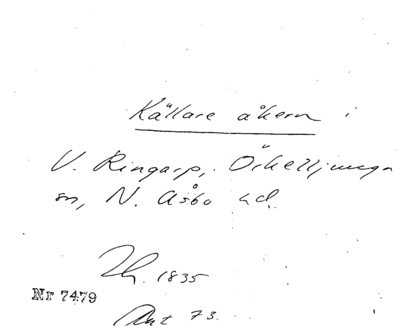 Källare åkern i
V. Ringarp, Örkelljunga
sn, N. Åsbo hd.
Th. 1835
Nr 7479
Ant 73.